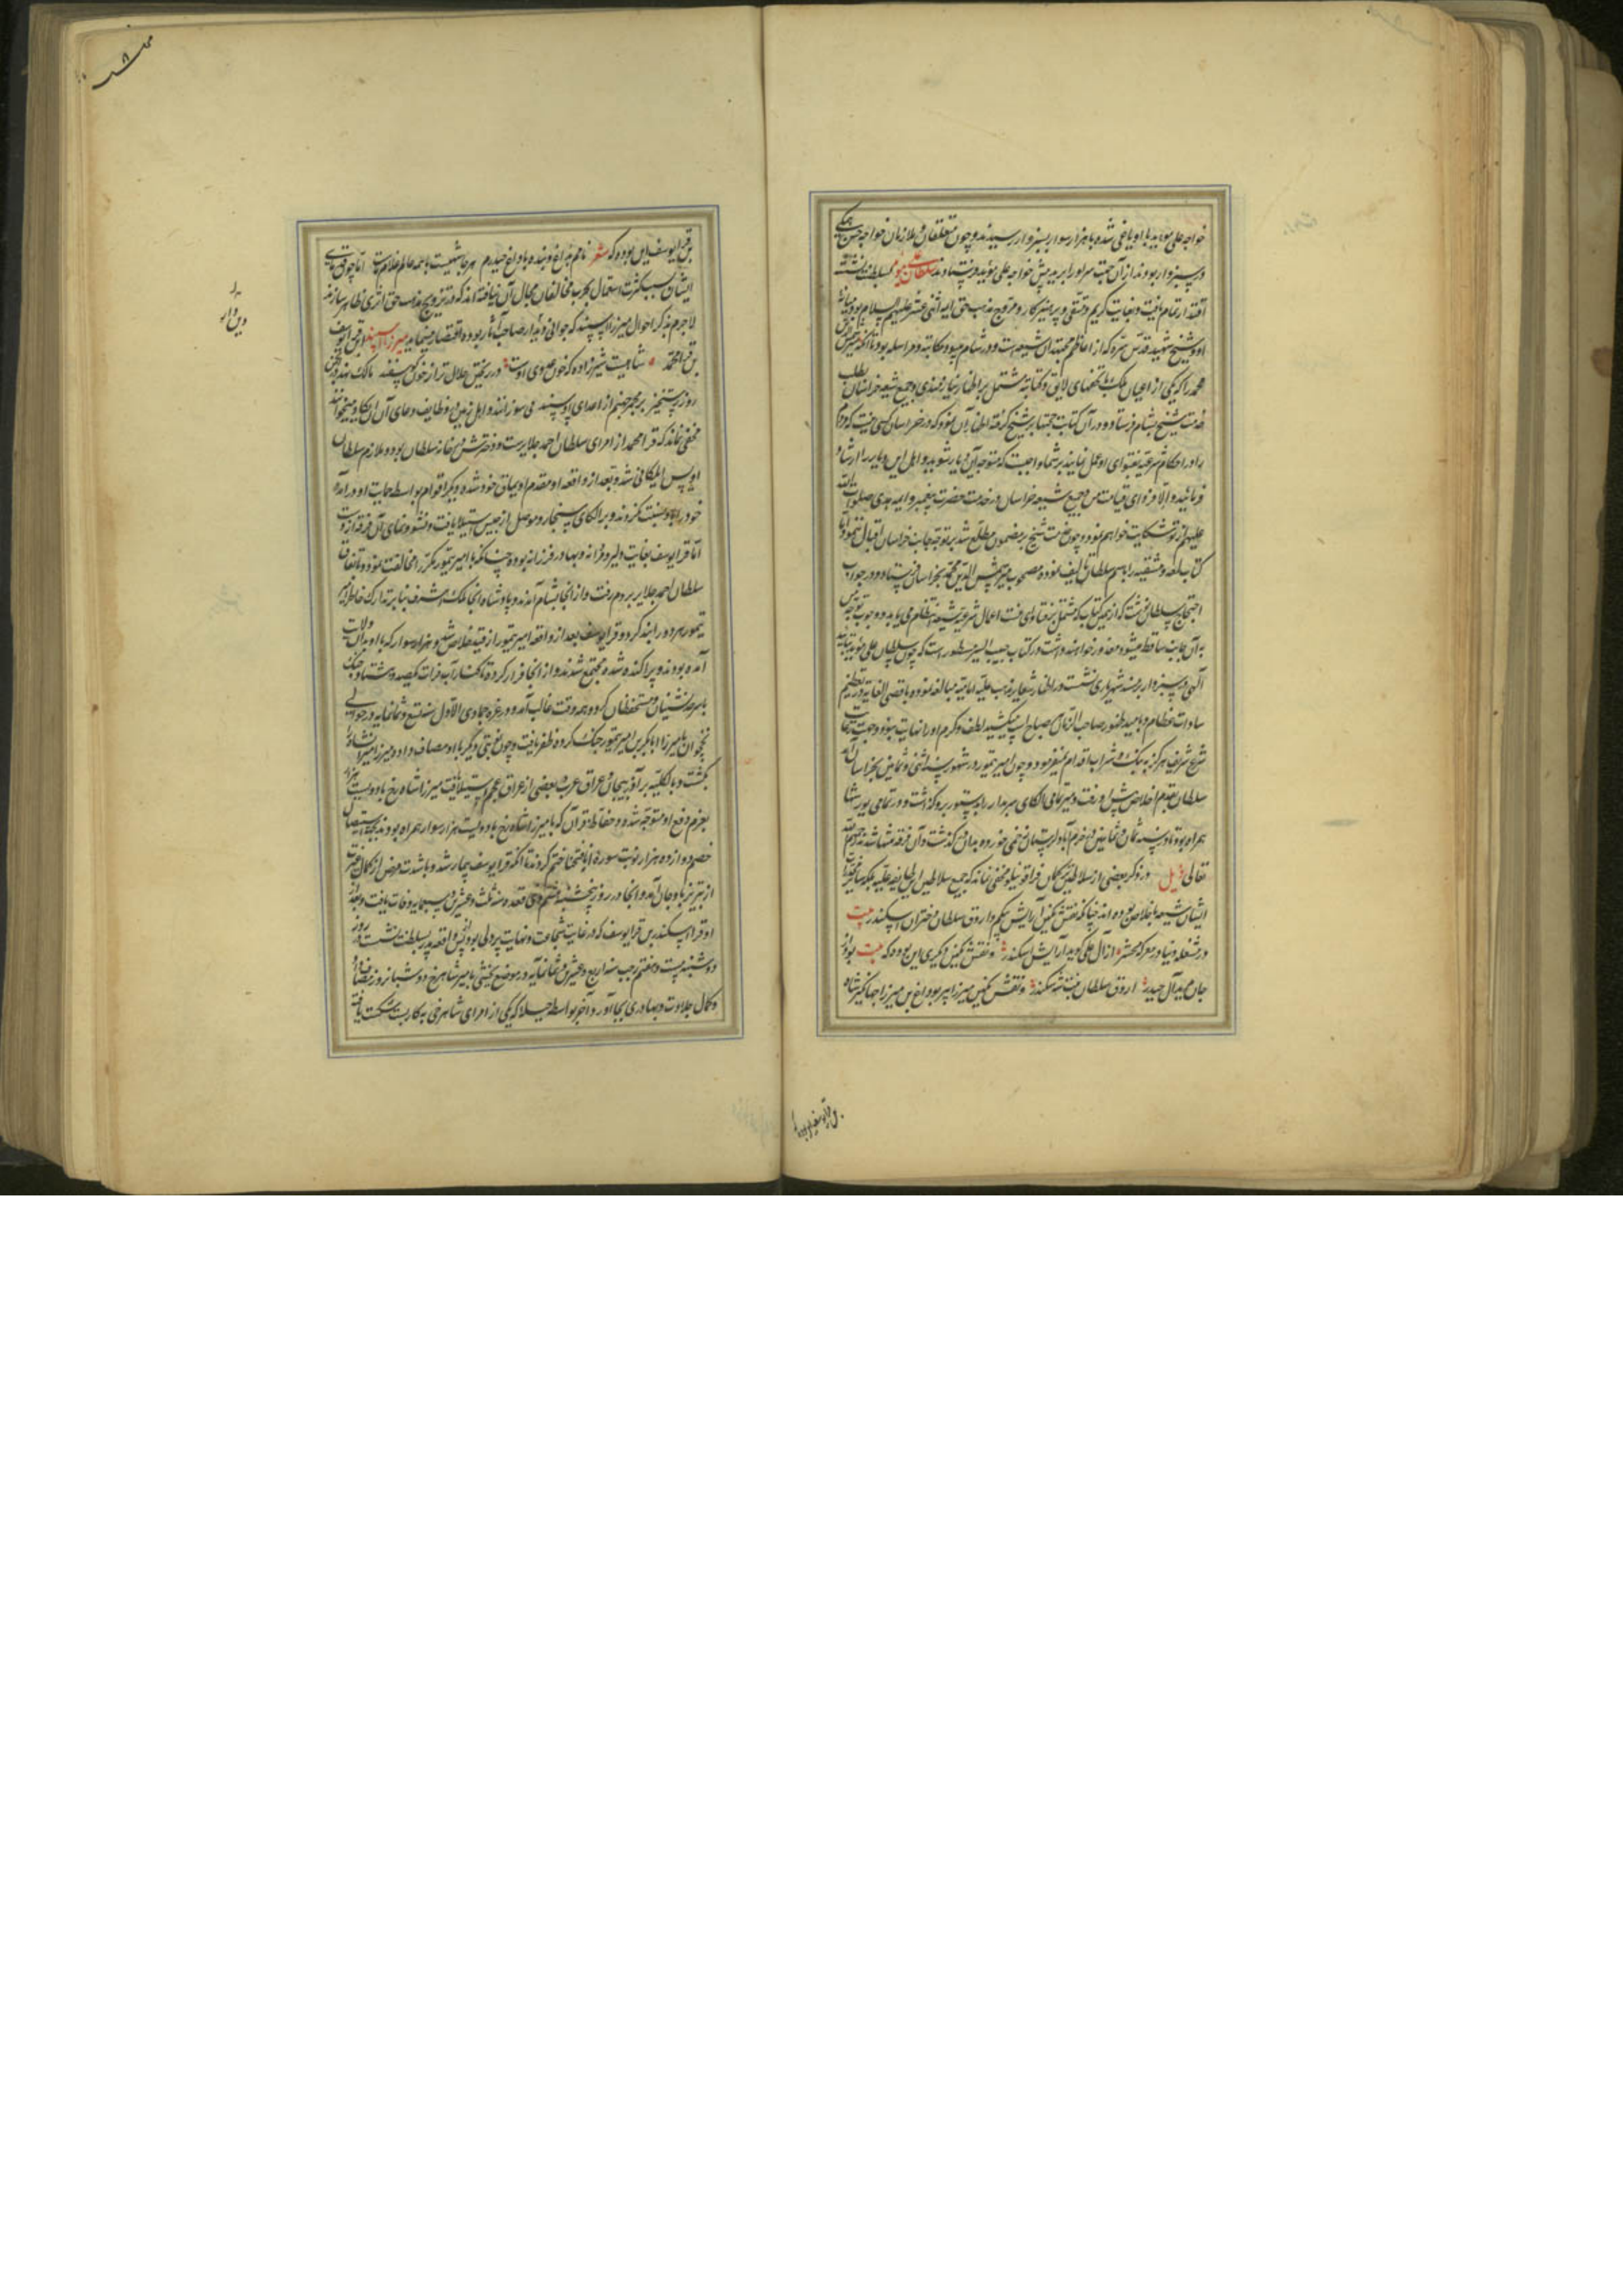 خواجه علی مؤید با او یاغی شده با هزار سوار بسبزوار رسیدند و چون متعلقان و ملازمان خواجه حسن همگی
در سبزوار بودند از آن جهت سر او را بریده پیش خواجه علی مؤید فرستادند سلطان علی مؤید بسلطنت نشست
اقتدار تمام یافت و بغایت کریم و متقی و پرهیزکار و مروج مذهب حق ایمه اثنی عشر علیهم السلام بود و میانه
او و شیخ شهید قدس سره که از اعاظم مجتهدان شیعه است و در شام میبود مکاتبه و مراسله بود تا آنکه شمس الدین
محمد را که یکی از اعیان ملک با تحفهای لایق و کتابتی مشتمل بر اظهار نیازمندی و جمیع شیعه خراسان بطلب
خدمت شیخ بشام فرستاد و در آن کتابت حجتها بر شیخ گرفته اظهار آن نمود که در خراسان کسی نیست که مردم
را در احکام شرعیه بفتوای او عمل نمایند بر شما واجبست که متوجه این دیار شوید و اهل این دیار را ارشاد
فرمائید و الا فردای قیامت من و جمیع شیعه خراسان در خدمت حضرت پیغمبر و ایمه هدی صلوات الله
علیهم از تو شکایت خواهیم نمود و چون خدمت شیخ بر مضمون مطلع شد بر توجه بجانب خراسان اقبال ننمود اما
کتاب لمعه دمشقیه را باسم سلطان تالیف نموده مصحوب میر شمس الدین محمد بخراسان فرستاد و در جواب
احتجاج سلطان نوشت که از همین کتاب که مشتمل بر فتاوای منست اعمال شرعیه شیعه انتظام می یابد و وجوب توجه من
به آن جانب ساقط میشود معذور خواهند داشت در کتاب حبیب السیر مسطور است که چون سلطان علی مؤید بتایید
الهی در سبزوار بر مسند شهریاری نشست در اظهار شعار مذهب علیه امامیه مبالغه نموده باقصی الغایة در تعظیم
سادات عظام و بامید ظهور صاحب الزمان هر صباح اسپ میکشید لطف و کرم او را نهایت نبود و جهت رعایت
شرع شریف هرگز به بنگ و شراب اقدام نمیفرمود و چون امیر تیمور در شهور سنه اثنی و ثمانین بخراسان آمد
سلطان بقدم اخلاص پیش او رفت و میر تمامی الکای سربدار را بدستور برو گذاشت و در تمامی یورشها
همراه بود تا در سنه ثمان و ثمانین در خرم آباد لرستان زخمی خورده بدان گذشت و آن فرقه منشا شدند رحمهم الله
تعالی ذیل در ذکر بعضی از سلاطین ترکمان قراقوینلو مخفی نماند که جمیع سلاطین این طایفه علیه بلکه سایر خواتین
ایشان شیعه با خلاص بوده اند چنانکه نقش نگین آرایش بیگم و اروق سلطان دختران اسکندر بیت
در مشغله دنیا در معرکه محشر از آل علی گوید آرایش اسکندر و نقش نگین دیگری این بوده که بیت بود از
جان محب آل حیدر اروق سلطان بنت شه سکندر و نقش نگین میرزا پیر بوداغ بن میرزا جهانکیر شاه
بن قرا یوسف این بوده
بن قرا یوسف این بوده که شعر نامم بداغ و بنده با داغ حیدرم هر جا شهیست با همه عالم غلام ماست اما چون قضای
ایشان بسبب کثرت اشتغال بحرب مخالفان مجال آن نیافته اند که در ترویج مذهب حق اثری ظاهر سازند
لا جرم بذکر احوال میرزا اسپند که جوانی دیندار صاحب آثار بوده اقتصار مینماید میرزا اسپند ابن قرا یوسف
بن قرا محمد شاهیت شیرزاده که خون عدوی اوست در ریختن حلال تر از خون گوسفند مالک
روز رستخیز بر مجمر جهنم از اعدای او سپند می سوزانند و اهل زمین و وظایف دعای آن میخوانند
مخفی نماند که قرا محمد از امرای سلطان احمد جلایرست و دخترش در خانه سلطان بود و ملازم سلطان
اویس ایلکانی شد و بعد از واقعه او مقدم اویماق خود شده و دیگر اقوام بواسطه حمایت او در آمده
خود را باو نسبت کردند و بر الکای سنجار و موصل ارجیس استیلا یافت و نشو و نمای آن فرقه از وست
اما قرا یوسف بغایت دلیر و فرزانه و بهادر و فرزانه بوده چنانکه با امیر تیمور مکرر مخالفت نموده باتفاق
سلطان احمد جلایر بروم رفت و از آنجا بشام آمدند و پادشاه آنجا ملک اشرف بنا بر تدارک خاطر امیر
تیمور هر دو را بند کرد و قرا یوسف بعد از واقعه امیر تیمور از قید خلاص شد و هزار سوار که با او بدان ولایت
آمده بودند و پراکنده شده مجتمع شدند و از آنجا فرار کرده تا کنار آب فرات یکصد و هشتاد جنگ
با سرحد نشینان و مستحفظان کرد و همه وقت غالب آمد و در غره جمادی الاول سنه تسع و ثمانمایه در حوالی
نخجوان با میرزا ابابکر بن امیر تیمور جنگ کرده ظفر یافت و چون نوبتی دیگر با او مصاف داد و میرزا میرانشاه را
بکشت و بالکلیه بر آذربیجان و عراق عرب و بعضی از عراق عجم استیلا یافت میرزا شاه رخ با دویست هزار
بعزم دفع او متوجه شده و حفاظ قرآن که با میرزا شاه رخ با دویست هزار سوار همراه بودند بجهة استیصال
خصم دوازده هزار نوبت سورهٔ انا فتحنا ختم کردند تا آنکه قرا یوسف بیمار شد و با شدت مرض از کمال غیرت
از تبریز باوجان آمد و آنجا در روز پنجشنبه هفتم ذی قعده سنه ثلث و عشرین و ثمانمایه وفات یافت و بعد از
او قرا اسکندر بن قرا یوسف که در غایت شجاعت و نهایت پردلی بود پس از واقعه پدر بسلطنت نشست و در روز
دوشنبه بیست و هفتم رجب سنه اربع و عشرین و ثمانمایه در موضع یخشی با میرزا شاهرخ دو شبانروز مصاف داد
و کمال جلادت و بهادری بجا آورد و آخر بواسطه حیله که یکی از امرای شاهرخی به کار بست شکست یافته